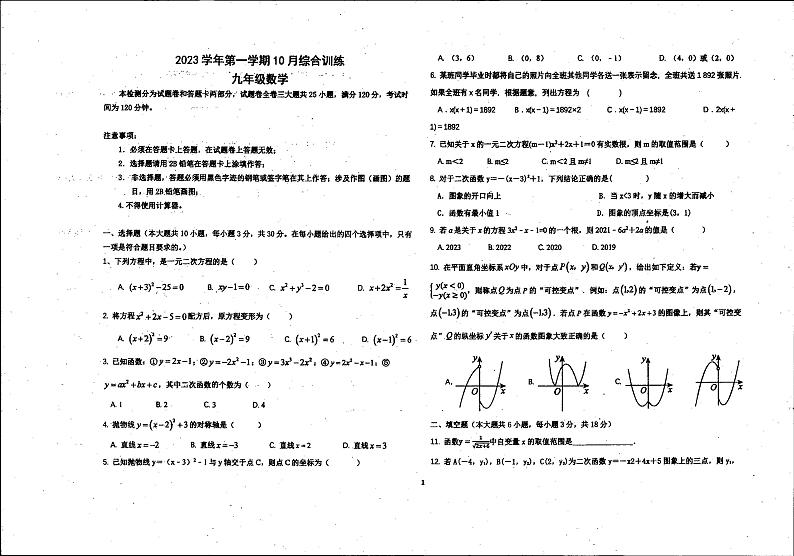 2023 学年第一学期 10 月综合训练
九年级数学
本检测分为试题卷和答题卡两部分。试题卷全卷三大题共 25 小题，满分 120 分，考试时
间为 120 分钟。
注意事项：
1. 必须在答题卡上答题，在试题卷上答题无效；
2. 选择题请用 2B 铅笔在答题卡上涂填作答；
3. 非选择题，答题必须用黑色字迹的钢笔或签字笔在其上作答；涉及作图（画图）的题
目，用 2B 铅笔画图；
4. 不得使用计算器。
一、选择题（本大题共 10 小题，每小题 3 分，共 30 分。在每小题给出的四个选择项中，只有
一项是符合题目要求的。）
1、下列方程中，是一元二次方程的是（ ）
A. (x+3)²−25=0 B. xy−1=0 C. x²+y³−2=0 D. x+2x²=1/x
2. 将方程 x²+2x−5=0 配方后，原方程变形为（ ）
A. (x+2)²=9 B. (x−2)²=9 C. (x+1)²=6 D. (x−1)²=6
3. 已知函数：①y=2x−1；②y=−2x²−1；③y=3x³−2x²；④y=2x²−x−1；⑤
y=ax²+bx+c，其中二次函数的个数为（ ）
A. 1 B. 2 C. 3 D. 4
4. 抛物线 y=(x−2)²+3 的对称轴是（ ）
A. 直线 x=−2 B. 直线 x=−3 C. 直线 x=2 D. 直线 x=3
5. 已知抛物线 y=（x﹣3）²﹣1 与 y 轴交于点 C，则点 C 的坐标为（ ）
A. （3，6） B. （0，8） C. （0，﹣1） D. （4，0）或（2，0）
6. 某班同学毕业时都将自己的照片向全班其他同学各送一张表示留念，全班共送 1 892 张照片.
如果全班有 x 名同学，根据题意，列出方程为 （ ）
A．x(x+1)=1892 B．x(x−1)=1892×2 C．x(x−1)=1892 D．2x(x+
1)=1892
7. 已知关于 x 的一元二次方程(m−1)x²+2x+1=0 有实数根，则 m 的取值范围是（ ）
A. m＜2 B. m≤2 C. m＜2 且 m≠1 D. m≤2 且 m≠1
8. 对于二次函数 y=−(x−3)²+1，下列结论正确的是( )
A．图象的开口向上 B．当 x<3 时，y 随 x 的增大而减小
C．函数有最小值 1 D．图象的顶点坐标是(3，1)
9. 若 a 是关于 x 的方程 3x²﹣x﹣1=0 的一个根，则 2021﹣6a²+2a 的值是（ ）
A. 2023 B. 2022 C. 2020 D. 2019
10. 在平面直角坐标系 xOy 中，对于点 P(x，y) 和 Q(x，y′)，给出如下定义：若 y=
{y(x<0) −y(x≥0)，则称点 Q 为点 P 的“可控变点”．例如：点(1,2)的“可控变点”为点(1,−2)，
点(−1,3)的“可控变点”为点(−1,3)．若点 P 在函数 y=−x²+2x+3 的图像上，则其“可控变
点”Q 的纵坐标 y′ 关于 x 的函数图象大致正确的是（ ）
A. y O x B. y O x C. y O x D. y O x
二、填空题（本大题共 6 小题，每小题 3 分，共 18 分）
11. 函数 y=1/√(2x+6) 中自变量 x 的取值范围是________.
12. 若 A(−4，y₁)，B(−1，y₂)，C(2，y₃)为二次函数 y=−x2+4x+5 图象上的三点，则 y₁，
1